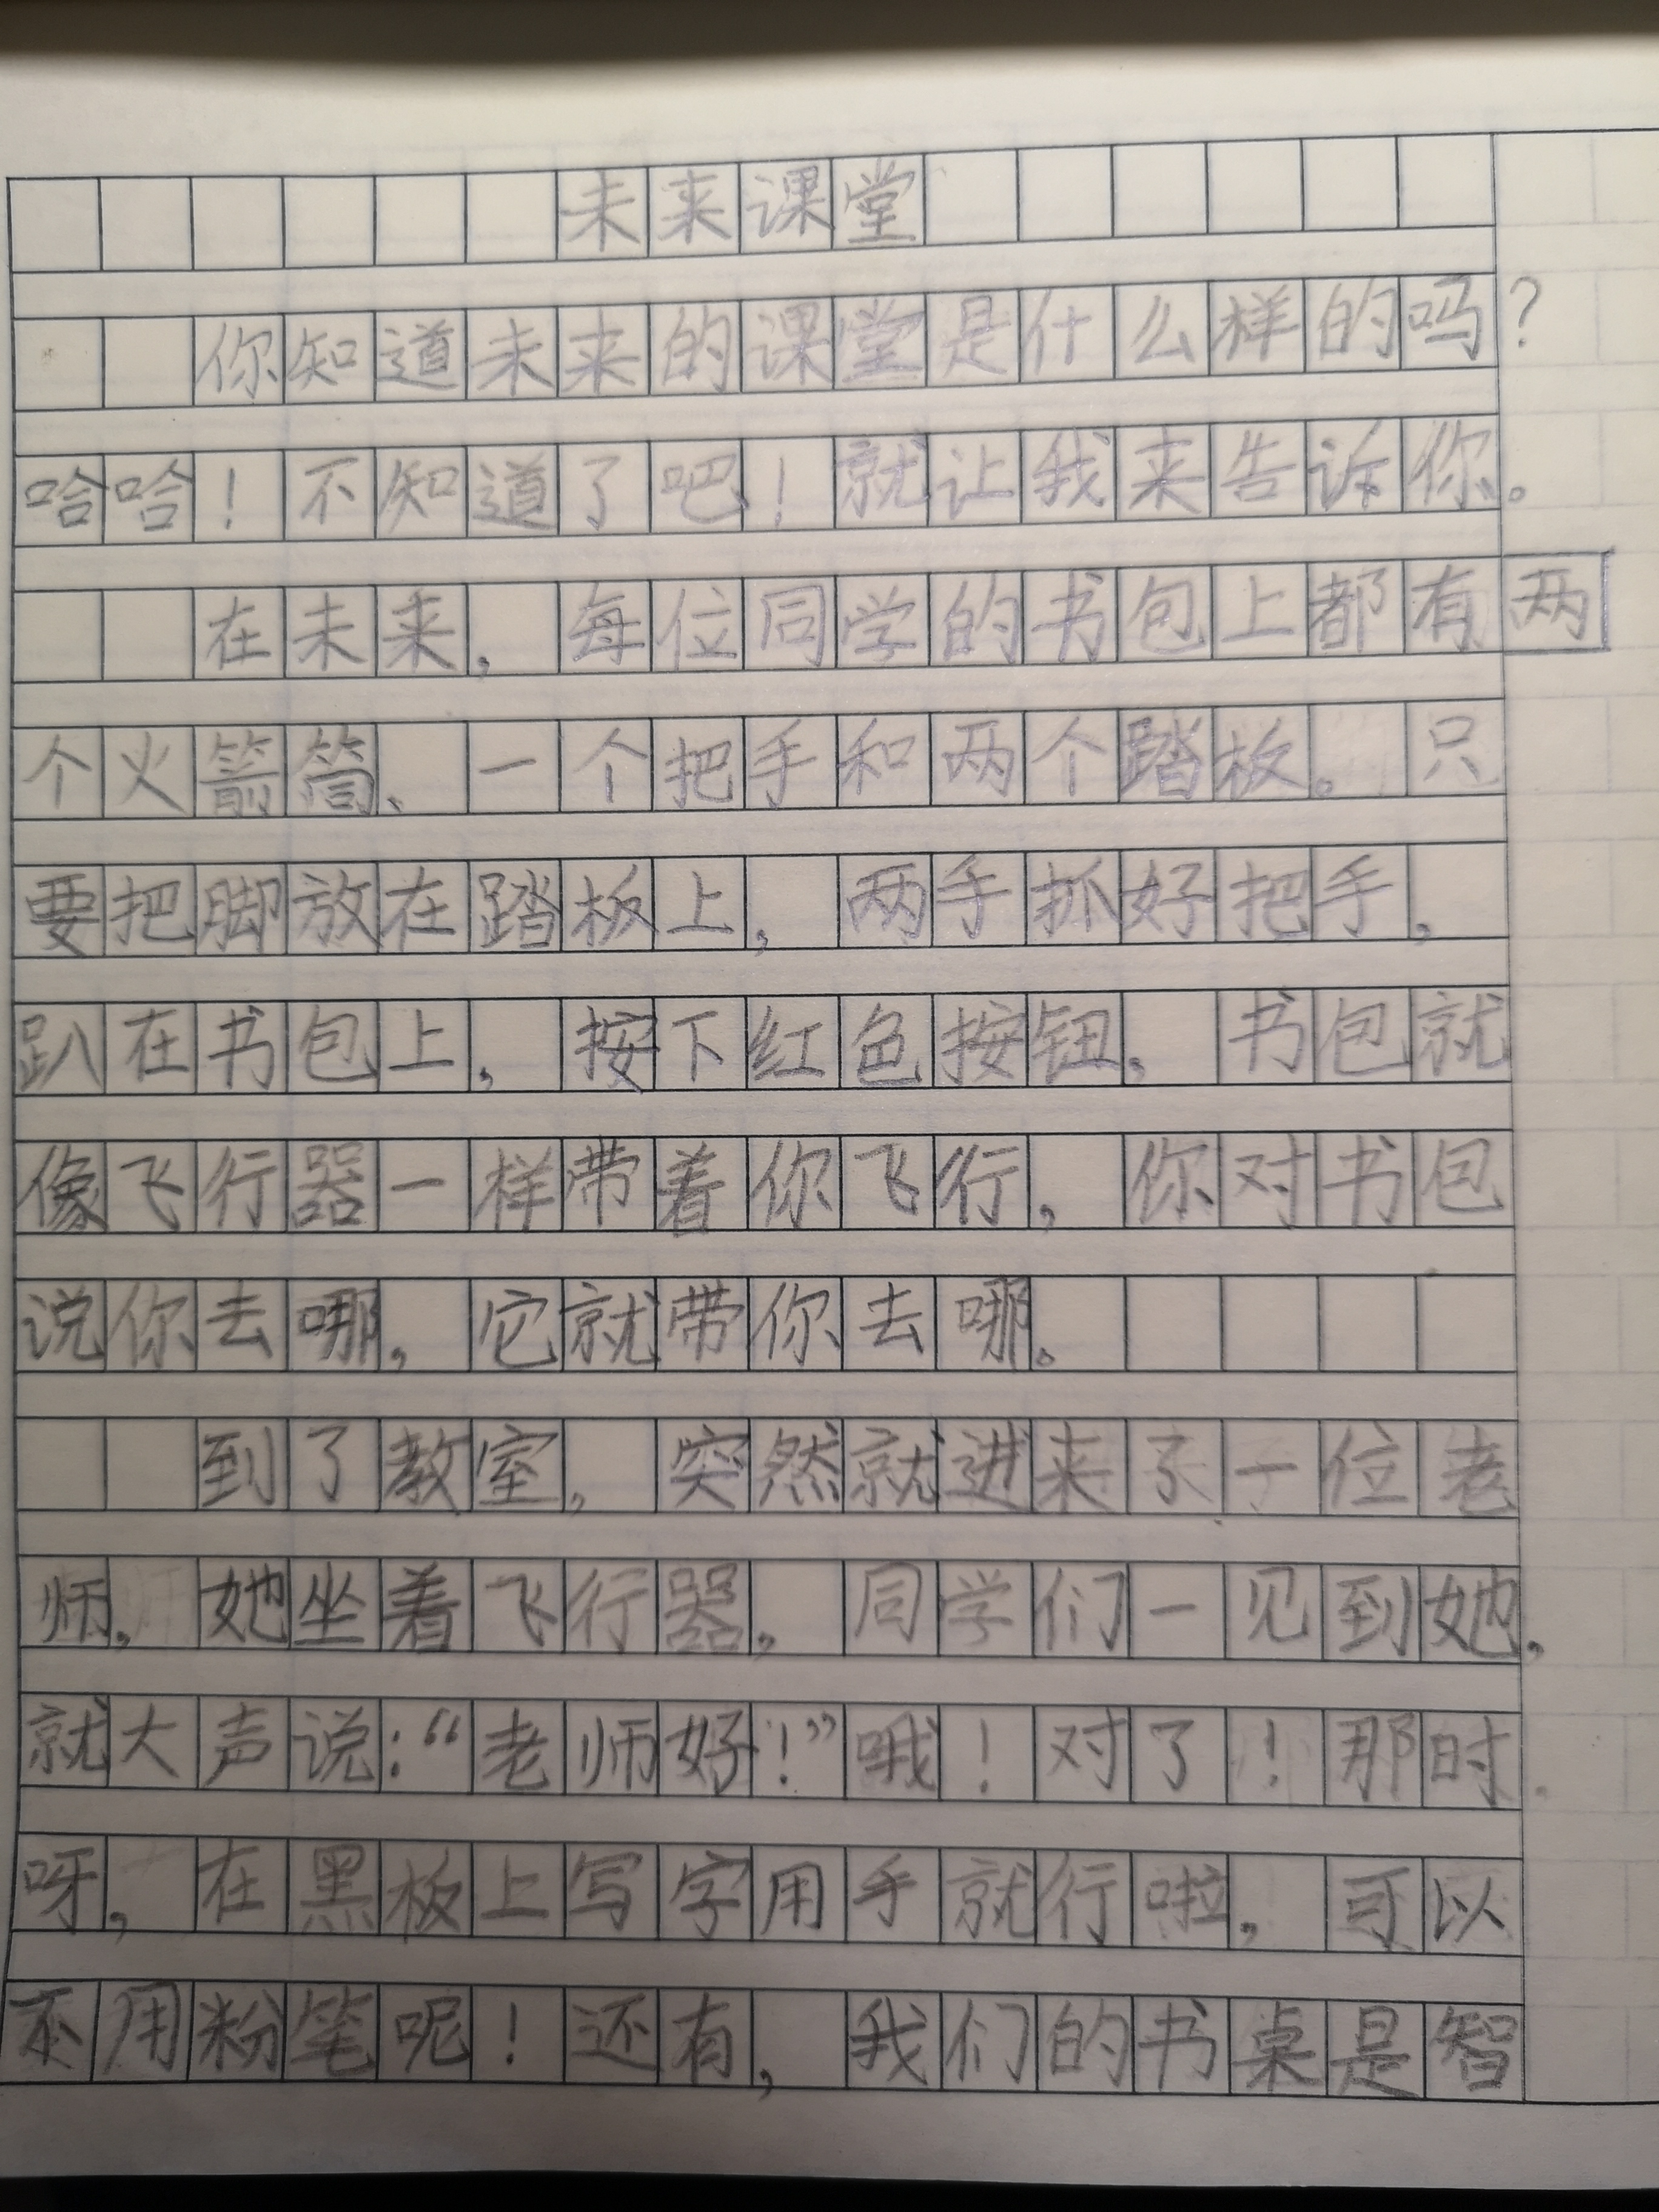 未来课堂
你知道未来的课堂是什么样的吗？
哈哈！不知道了吧！就让我来告诉你。
在未来，每位同学的书包上都有两
个火箭筒、一个把手和两个踏板。只
要把脚放在踏板上，两手抓好把手，
趴在书包上，按下红色按钮。书包就
像飞行器一样带着你飞行，你对书包
说你去哪，它就带你去哪。
到了教室，突然就进来了一位老
师，她坐着飞行器，同学们一见到她，
就大声说：“老师好！”哦！对了！那时
呀，在黑板上写字用手就行啦，可以
不用粉笔呢！还有，我们的书桌是智